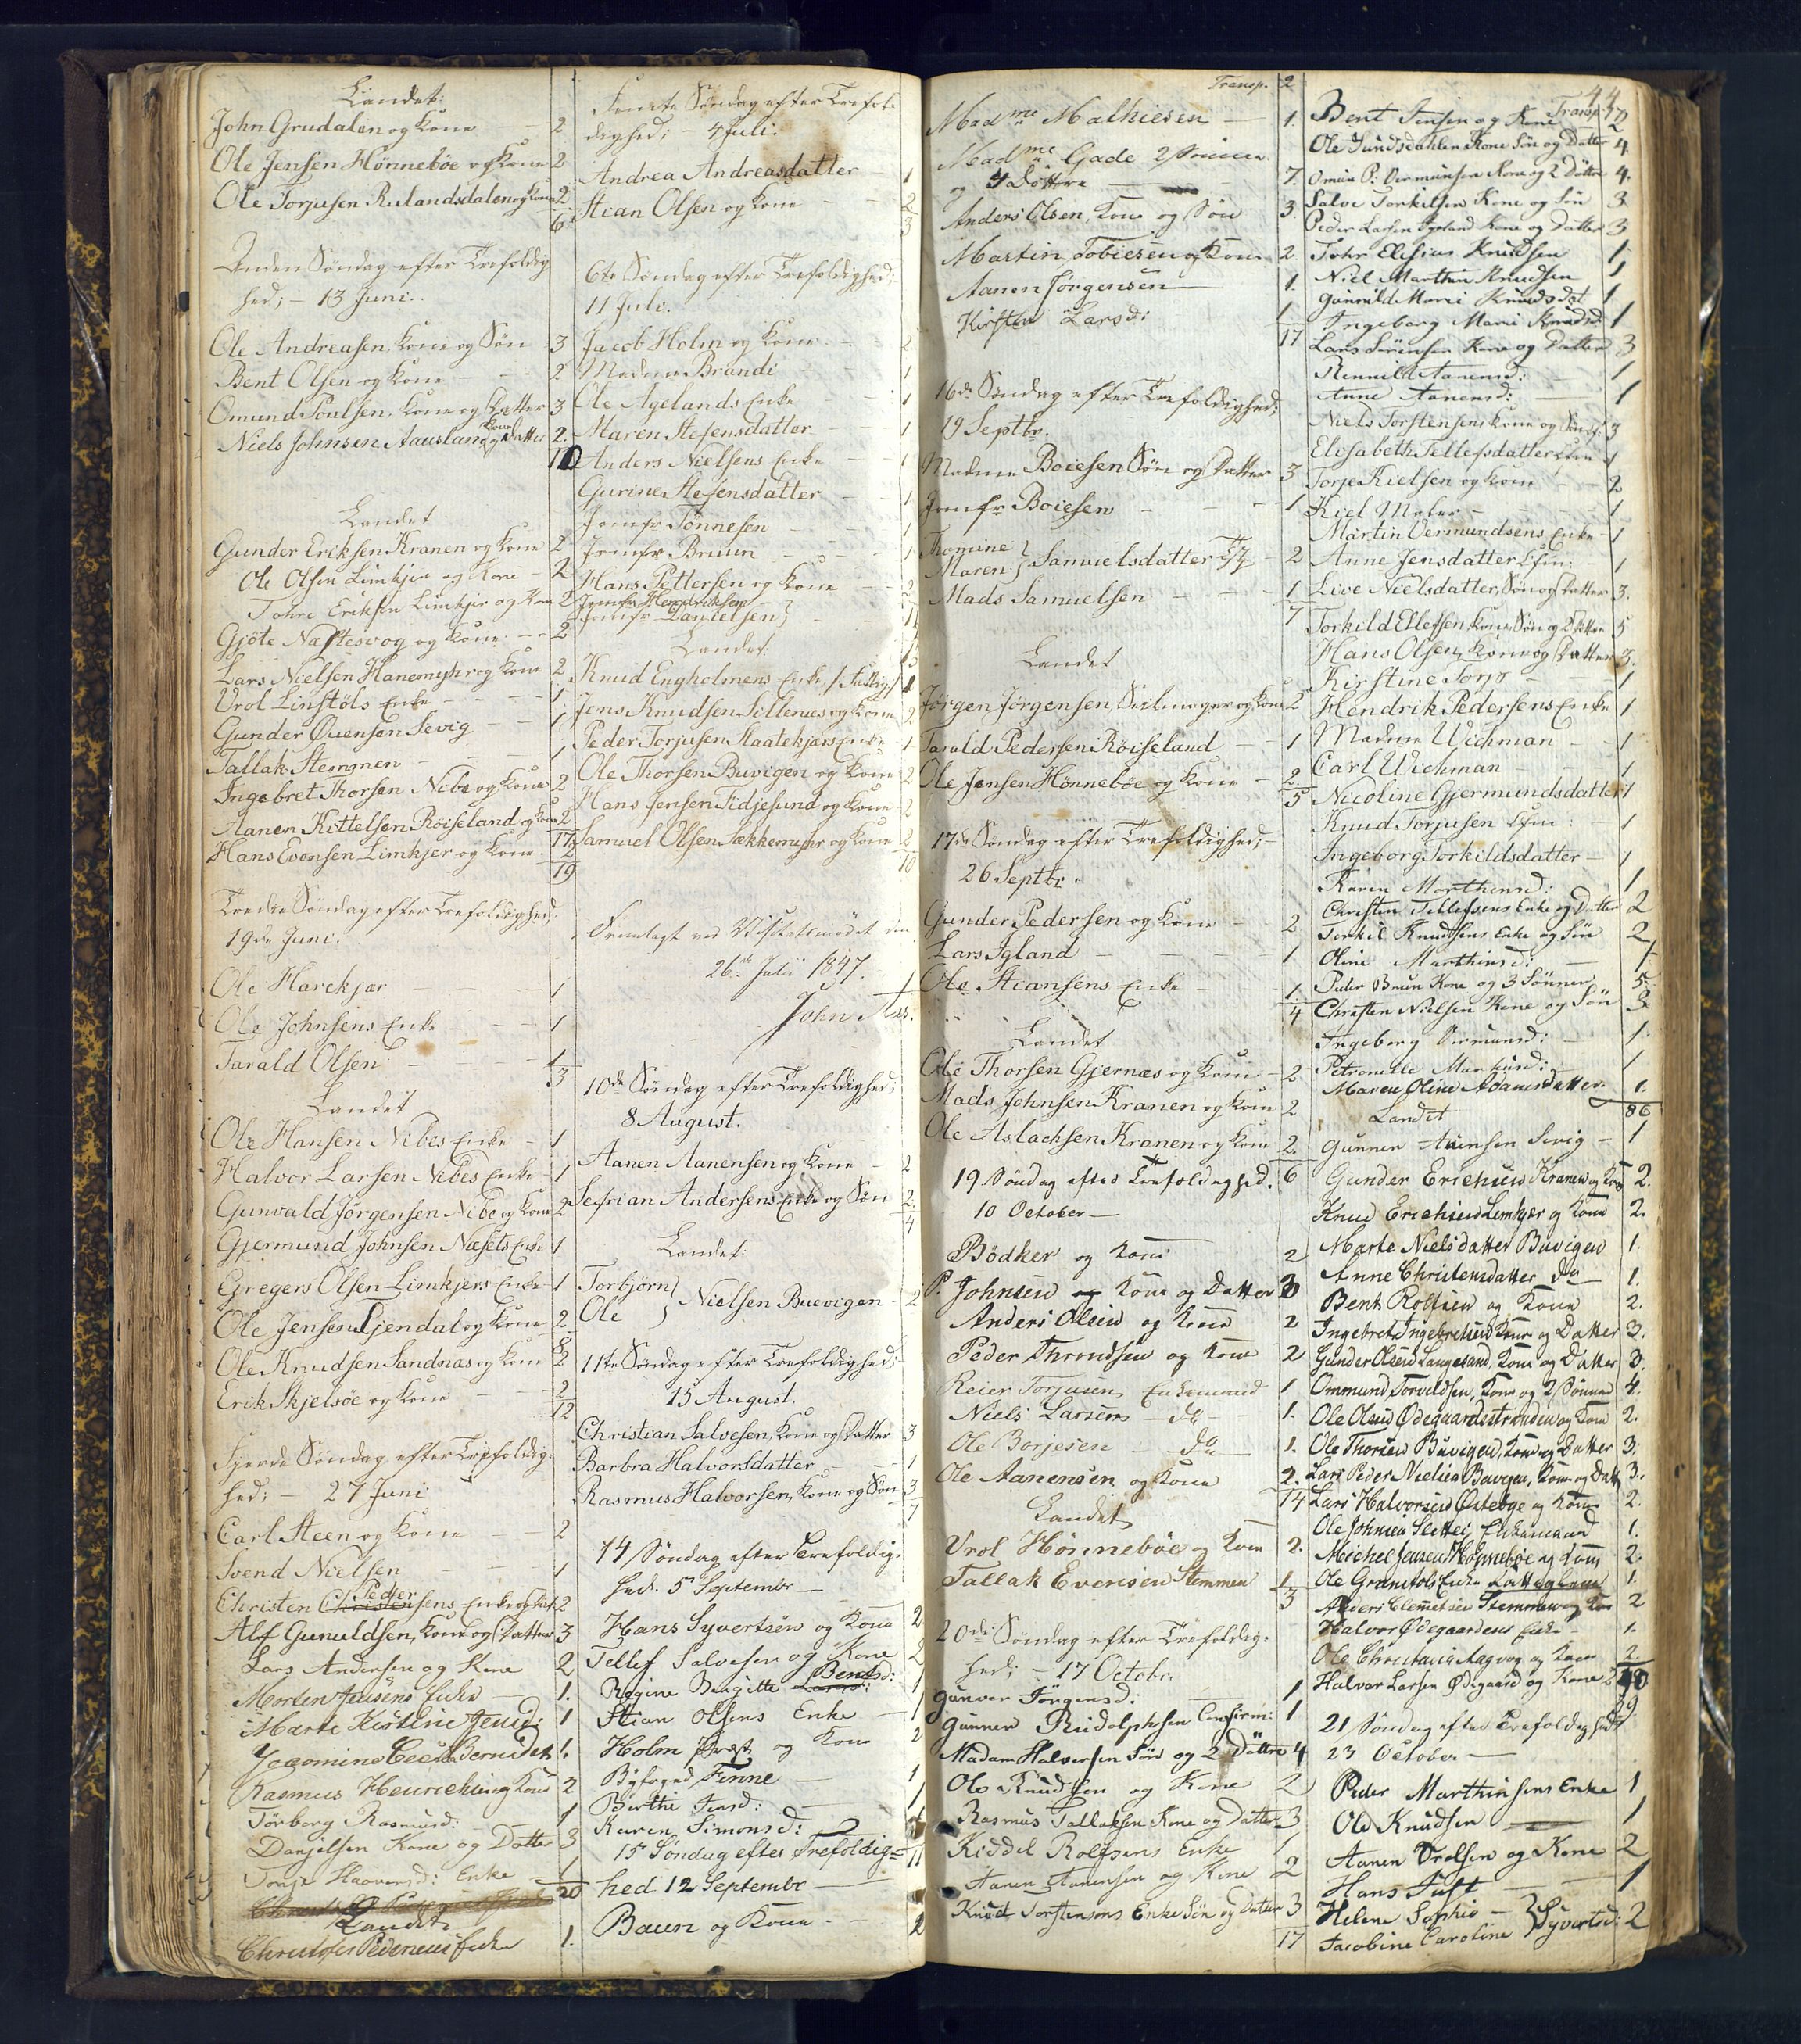 Landet:
John Grudalen og Kone 2
Ole Jensen Hønnebøe og Kone 2
Ole Torjusen Rulandsdalen og Kone 2
6
Anden Søndag efter Trefoldig
hed; - 13 Juni.
Ole Andreasen, Kone og Søn 3
Bent Olsen og Kone - 2
Omund Poulsen, Kone og Datter 3
Niels Johnsen Aausland, Kone og Datter 2.
10
Landet
Gunder Eriksen Kranen og Kone 2
Ole Olsen Limkjer og Kone - 2
Tohre Eriksen Limkjer og Kone 2
Gjöte Næstesvog og Kone - 2
Lars Nielsen Hanemyhr og Kone 2
Vrol Linstöls Enke - 1
Gunder Ouensen Sevig - 1
Tallak Stemmen - 1
Ingebret Thorsen Nibe og Kone 2
Aanen Kittelsen Røiseland og Kone 2
17
Hans Evensen Limkjer og Kone 2
19
Tredie Søndag efter Trefoldighed;
19de Juni.
Ole Harekjær 1
Ole Johnsens Enke 1
Tarald Olsen 1
3
Landet
Ole Hansen Nibes Enke - 1
Halvor Larsen Nibes Enke - 1
Gunvald Jörgensen Nibe og Kone 2
Gjermund Johnsen Næsets Enke 1
Gregers Olsen Limkjers Enke 1
Ole Jensen Ljendal og Kone 2
8
Ole Knudsen Sandnæs og Kone 2
Erik Skjelsöe og Kone 2
12
Fjerde Søndag efter Trefoldig:
hed; - 27 Juni
Carl Steen og Kone 2
Svend Nielsen 1
Christen Pedersens Enke og Dat. 2
Alf Gunuldsen, Kone og Datter 3
Lars Andersen og Kone 2
Morten Jensens Enke 1.
Marte Kistine Jensd: 1
Jacomine Cecil Berntdat 1.
Rasmus Henrichsen og Kone 2
Torborg Rasmusd: 1
Danjelsen Kone og Datter 3
Tonje Haavorsd: Enke 1
20
Landet
Christofer Pedersens Enke 1.
Femte Søndag efter Trefol:
dighed; - 4 Juli.
Andrea Andreasdatter 1
Stian Olsen og Kone 2
3
6te Søndag efter Trefoldighed;
11 Juli.
Jacob Holm og Kone 2
Madme Brandi 1
Ole Agelands Enke 1
Maren Stefensdatter 1
Anders Nielsens Enke 1
Gurine Stefensdatter 1
Jomfr Tönnesen 1
Jomfr Bruun 1
Hans Pettersen og Kone 2
Jomfr Hendriksen
Jomfr Danielsen
13
Landet
Knud Engholmens Enke / Fattig / 1
Jens Knudsen Sillenæs og Kone 2
Peder Torjusen Staatekjærs Enke 1
Ole Thorsen Buvigen og Kone 2
Hans Jensen Tidjesund og Kone 2
Samuel Olsen Sækkemyhr og Kone 2
10
Fremlagt ved Visitatsmødet den
26de Julii 1847.
John Aas.
10de Søndag efter Trefoldighed;
8 August.
Aanen Aanensen og Kone 2
Sefrian Andersens Enke og Søn 2.
4
Landet:
Torbjörn
Ole } Nielsen Buevigen 2
11te Søndag efter Trefoldighed;
15 August.
Christian Salvesen, Kone og Datter 3
Barbra Halvorsdatter 1
Rasmus Halvorsen, Kone og Søn 3
7
14 Søndag efter Trefoldig:
hed. 5 Septembr
Hans Syvertsen og Kone 2
Tellef Salvesen og Kone 2
Regine Birgitte Bentsd: 1
Stian Olsens Enke 1
Holm Præst og Kone 2
Byfoged Finne 1
Birthe Jensd: 1
Karen Simonsd: 1
11
15 Søndag efter Trefoldig=
hed 12 Septembr
Baun og Kone 2
Transp. 2
Madme Mathiesen 1.
Madme Gade 2 Sönner
og 4 Döttre 7.
Anders Olsen, Kone og Søn 3.
Martin Tobiesen og Kone 2
Aanen Jörgensen 1.
Kirsten Larsd: 1
17
16de Søndag efter Trefoldighed;
19 Septbr.
Madme Boiesen Søn og Datter 3
Jomfr Boiesen 1
Thomine
Maren } Samuelsdatter 2
Mads Samuelsen 1
7
Landet
Jørgen Jörgensen Seilmager og Kone 2
Tarald Pedersen Röiseland 1
Ole Jensen Hønnebøe og Kone 2.
5
17de Søndag efter Trefoldighed;
26 Septbr.
Gunder Pedersen og Kone 2
Lars Igland 1
Ole Stiansens Enke 1.
4
Landet
Ole Thorsen Gjernæs og Kone 2
Mads Johnsen Kranen og Kone 2
Ole Aslachsen Kranen og Kone 2.
6
19 Söndag efter Trefoldighed.
10 October
Bödker og Kone 2
P. Johnsen Kone og Datter 3
Anders Olsen og Kone 2
Peder Throndsen og Kone 2
Reier Torjusen Enkemand 1
Niels Larsen do 1.
Ole Borjesen do 1.
Ole Aanensen og Kone 2.
14
Landet
Vrol Hönnebøe og Kone 2.
Tallak Evensen Stemmen 1
3
20de Søndag efter Trefoldig:
hed; - 17 Octobr.
Gunvor Jörgensd: 1
Gunner Rudolphsen Confirm: 1
Madam Halvorsen Søn og 2 Döttre 4
Ole Knudsen og Kone 2
Rasmus Tallaksen Kone og Datter 3
Kiddel Rolfsens Enke 1
Aanen Aanensen og Kone 2
Knud Torstensens Enke Søn og Datter 3
17
44
Transp.
Bent Jensen og Kone 2
Ole Sundsdahlen Kone Søn og Datter 4
Omun P. Vermunsen Kone og 2 Döttre 4.
Salve Torkilsen Kone og Søn 3
Peder Larsen Igeland Kone og Datter 3
Tohr Elisius Knudsen 1.
Niel Marthin Knudsen 1
Gunnild Marie Knudsdat 1
Ingeborg Marie Knudsd: 1
Lars Sörensen Kone og Datter 3
Rennild Aanensd: 1
Anne Aanensd: 1
Niels Torstensen Kone og Søn 3
Elisabeth Tellefsdatter 1
Torje Kielsen og Kone 2
Kiel Maler 1
Martin Vermundsens Enke 1
Anne Jensdatter 1
Live Nielsdatter, Søn og Datter 3.
Torkild Ellefsen Kone, Søn og Datter 5
Hans Olsen, Kone og Datter 3.
Kirstine Torjs 1
Hendrik Pedersens Enke 1
Madme Wichman 1
Carl Wichman 1
Nicoline Gjermundsdatter 1
Knud Torjusen 1
Ingeborg Torkildsdatter 1
Karen Morthensd: 1
Christen Tellefsens Enke og Datter 2
Terkil Knudsens Enke og Søn 2
Oline Marthinsd: 1
Peder Bruun Kone og 3 Sönner 5
Christen Nielsen Kone og Søn 3
Ingeborg Vermunsd: 1.
Petronelle Markusd: 1
Maren Oline Adamsdatter 1.
86
Landet
Gunner Aanensen Sevig 1
Gunder Erichsen Kranen og Kone 2.
Knud Erichsen Lemkjær og Kone 2.
Marte Nielsdatter Buvigen 1.
Anne Christensdatter do 1.
Bent Rolfsen og Kone 2.
Ingebret Ingebretsen Kone og Datter 3.
Gunder Olsen Langesand, Kone og Datter 3.
Ommund Torvildsen, Kone og 2 Sönner 4.
Ole Olsen Ødegaardsstranden og Kone 2.
Ole Thorsen Buvigen, Kone og Datter 3.
Lars Peder Nielsen Buvigen, Kone og Datt 3.
Lars Halvorsen Østebøe og Kone 2.
Ole Johnsen Slettei, Enkemand 1.
Michel Jensen Hönnebøe og Kone 2.
Ole Grunstöls Enke 1.
Anders Clemetsen Stemmen og Kone 2
Halvor Ødegaardens Enke 1.
Ole Christensen Aagvog og Kone 2.
Halvor Larsen Ødegaard og Kone 2
39
21 Søndag efter Trefoldighed
23 October
Peder Marthinsens Enke 1
Ole Knudsen 1
Aanen Vrolsen og Kone 2
Hans Tuft 1
Helene Sophie
Jacobine Caroline } Syvertsd: 2